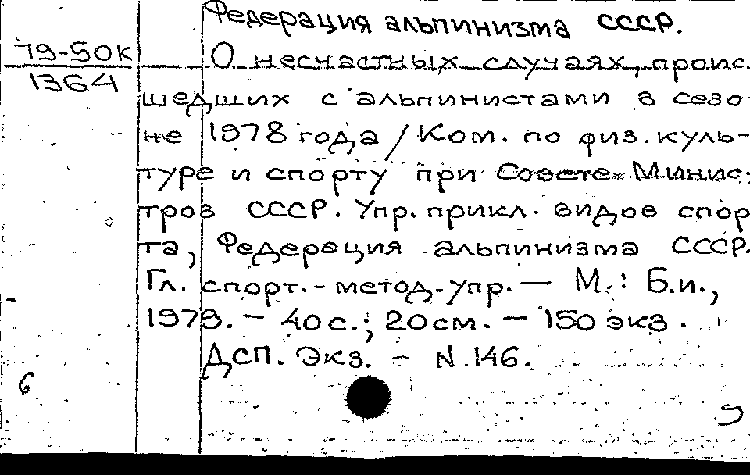 Федерация альпинизма СССР.
79-50К
1364
О несчастных случаях, проис-
шедших с альпинистами в сезо-
не 1978 года / Ком. по физ. куль-
туре и спорту при Совете Минис-
тров СССР. Упр. прикл. видов спор
та, Федерация альпинизма СССР.
Гл. спорт.-метод. упр. — М.: Б.и.,
1979. — 40 с.; 20 см. — 150 экз.
ДСП. Экз. - N 146.
6